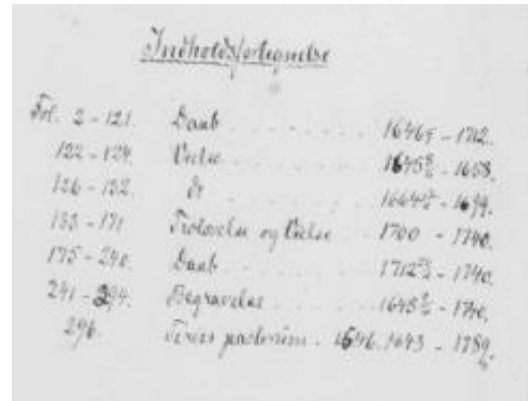 Indholdsfortegnelse
Fol. 2 - 121. Daab 1646 - 1712.
122 - 124. Vielse 1645 - 1658.
126 - 132. do 1664 - 1699.
133 - 171 Trolovelse og Vielse 1700 - 1740.
175 - 240. Daab 1712 - 1740.
241 - 294. Begravelse 1645 - 1740.
296. Series pastorum. 1546. 1643 - 1789.